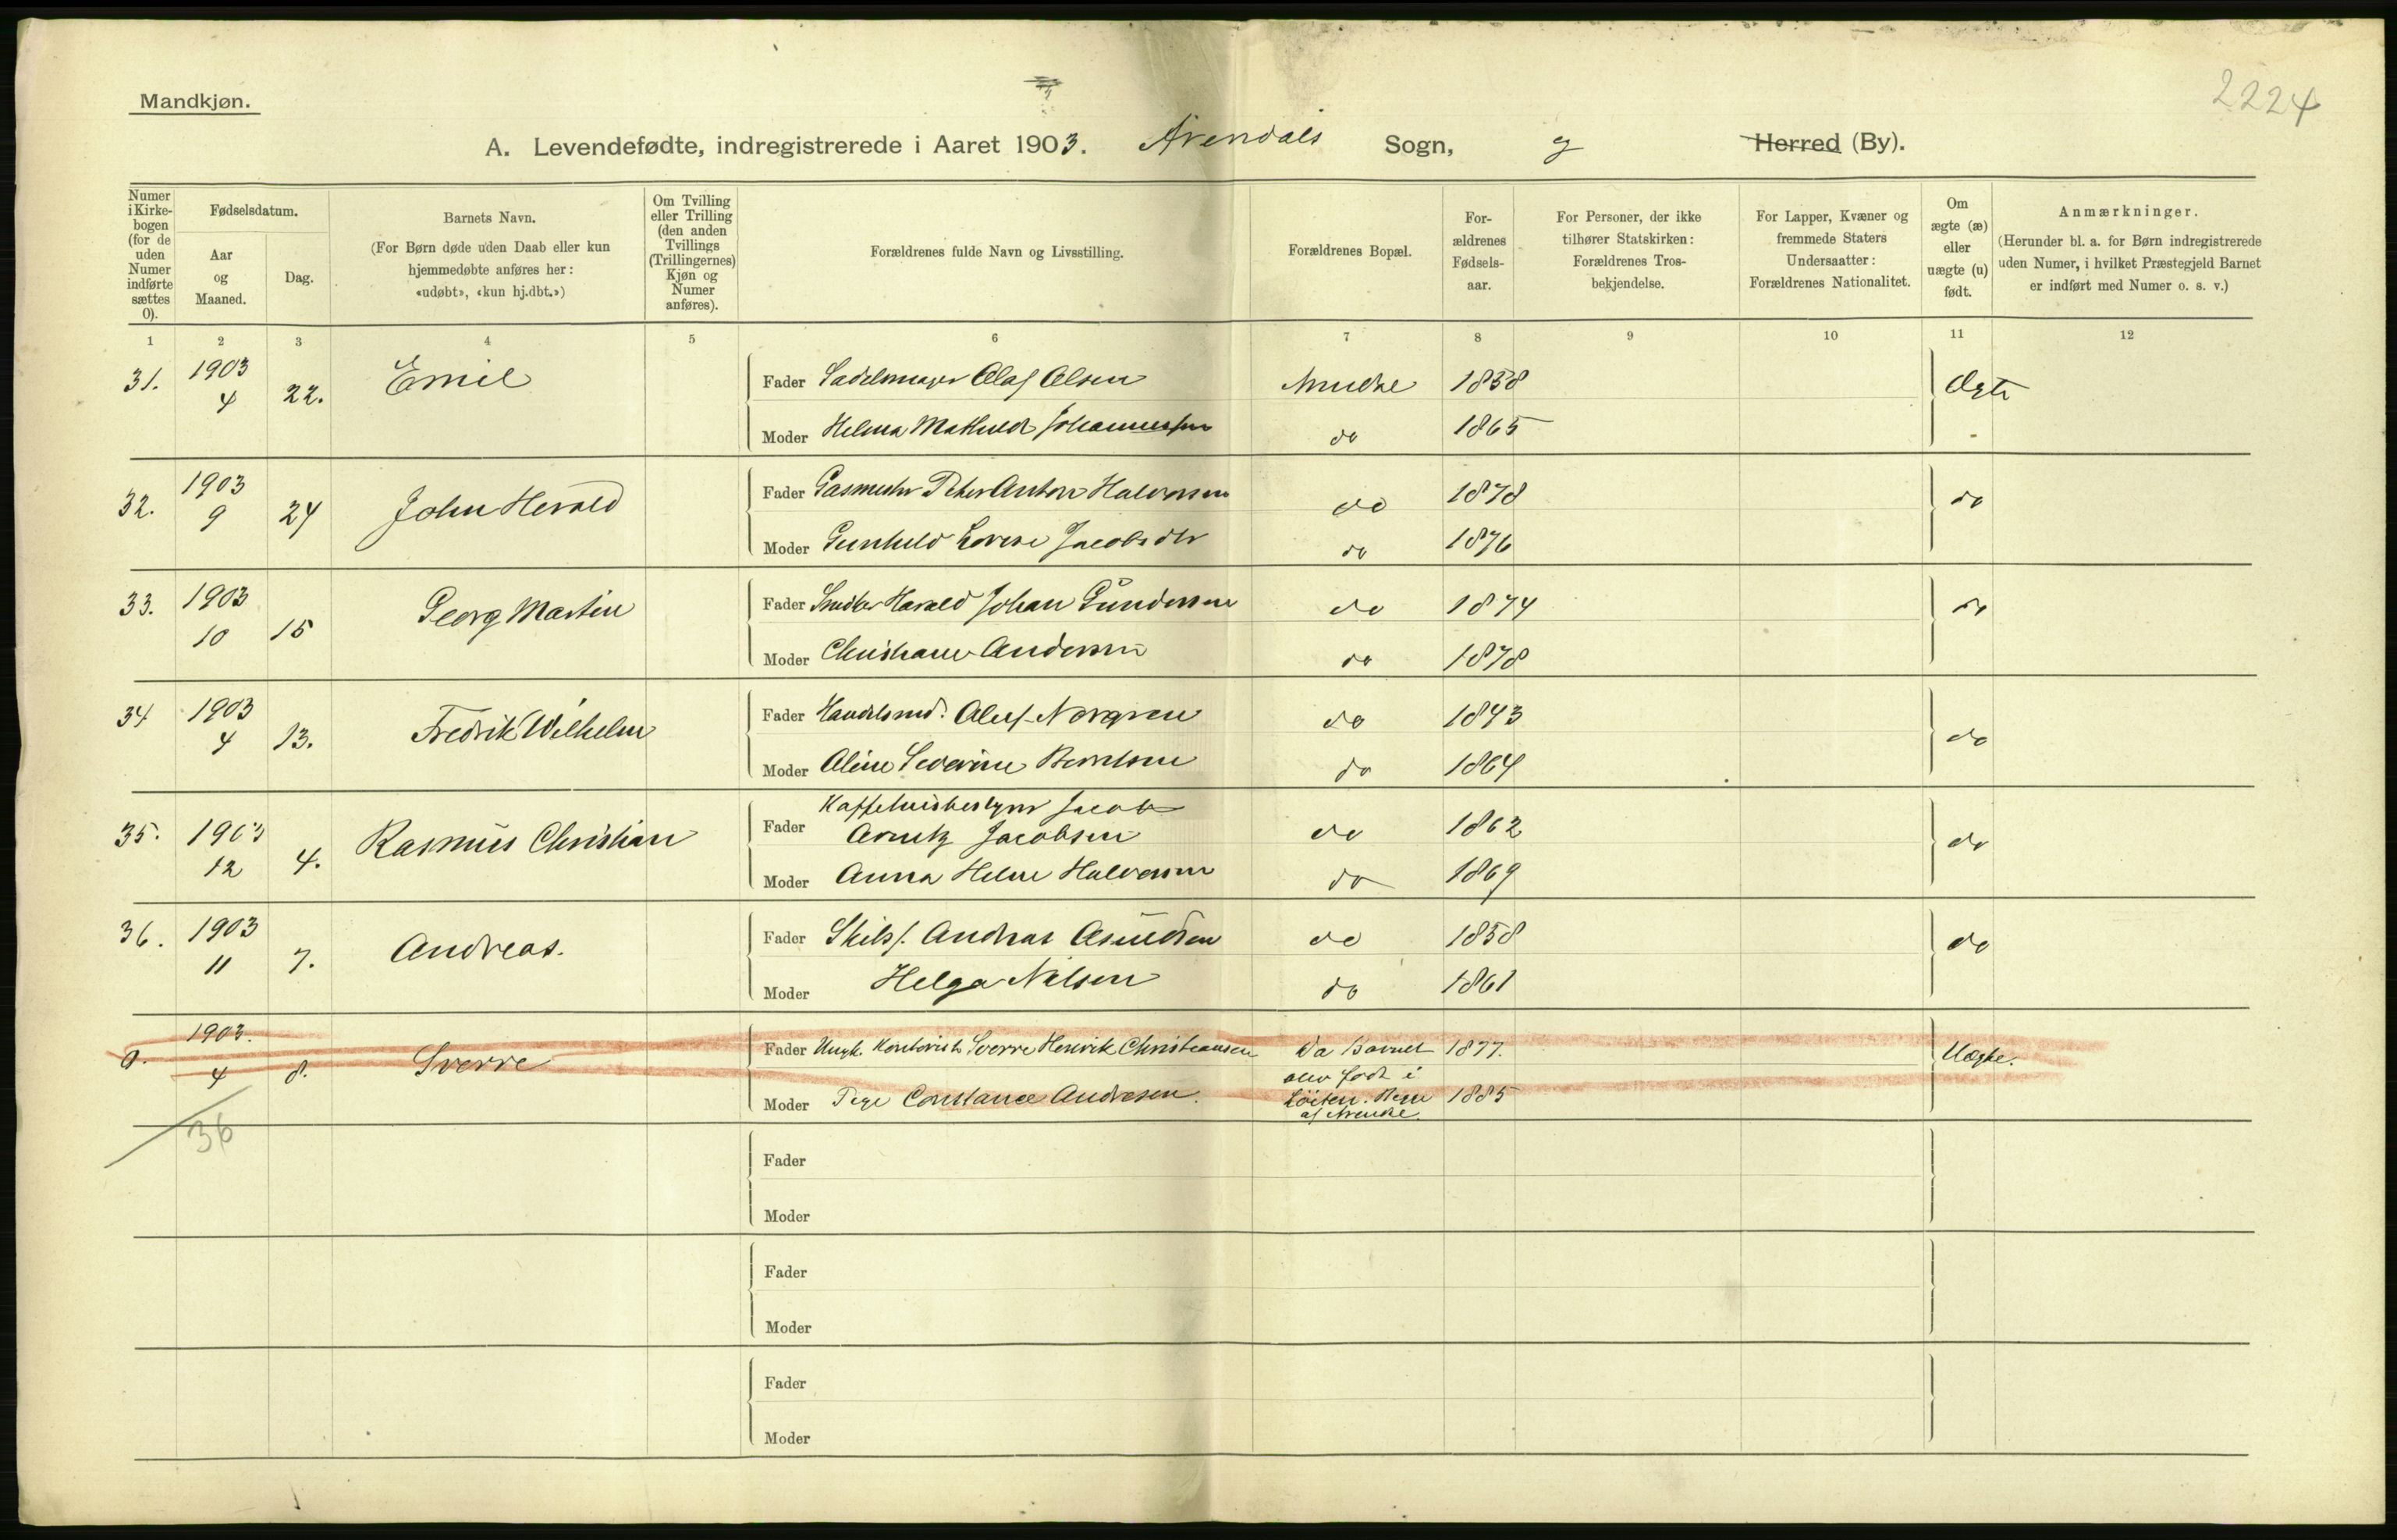 2224
Mandkjøn.
A. Levendefødte, indregistrerede i Aaret 1903. Arendals Sogn, Herred (By).
Numer i Kirke-bogen (for de uden Numer indførte sættes 0).
Fødselsdatum.
Aar og Maaned.
Dag.
Barnets Navn.
(For Børn døde uden Daab eller kun hjemmedøbte anføres her: «udøbt», «kun hj.dbt.»)
Om Tvilling eller Trilling (den anden Tvillings (Trillingernes) Kjøn og Numer anføres).
Forældrenes fulde Navn og Livsstilling.
Forældrenes Bopæl.
For-ældrenes Fødsels-aar.
For Personer, der ikke tilhører Statskirken: Forældrenes Tros-bekjendelse.
For Lapper, Kvæner og fremmede Staters Undersaatter: Forældrenes Nationalitet.
Om ægte (æ) eller uægte (u) født.
Anmærkninger.
(Herunder bl. a. for Børn indregistrerede uden Numer, i hvilket Præstegjeld Barnet er indført med Numer o. s. v.)
1 2 3 4 5 6 7 8 9 10 11 12
31. 1903 4 22. Emil Fader Sadelmager Olaf Olsen 1858 Ægte
Moder Helma Mathilde Johannessen do 1865
32. 1903 9 24 John Herald Fader Gasmester Peter Anton Halvorsen do 1878 do
Moder Gunhild Lovise Jacobsdtr do 1876
33. 1903 10 15 Georg Martin Fader Harald Johan Gundersen do 1874 do
Moder Christiane Andersen do 1878
34 1903 4 13. Fredrik Wilhelm Fader Handelsmd. Oluf Norgren do 1843 do
Moder Oline Severine Berntsen do 1864
35. 1903 12 4. Rasmus Christian Fader Kaffehusbestyrer Jacob
Arntz Jacobsen do 1862 do
Moder Anna Helene Halvorsen do 1869
36. 1903 11 7. Andreas. Fader Skibsf. Andreas Asmundsen do 1858 do
Moder Helga Nilsen do 1861
0. 1903. 4 8. Sverre Fader Ungk. Kontorist Sverre Henrik Christiansen Da Barnet 1877. Uægte.
blev født i
Moder Pige Constance Andresen. Løiten. 1885
36
Fader
Moder
Fader
Moder
Fader
Moder